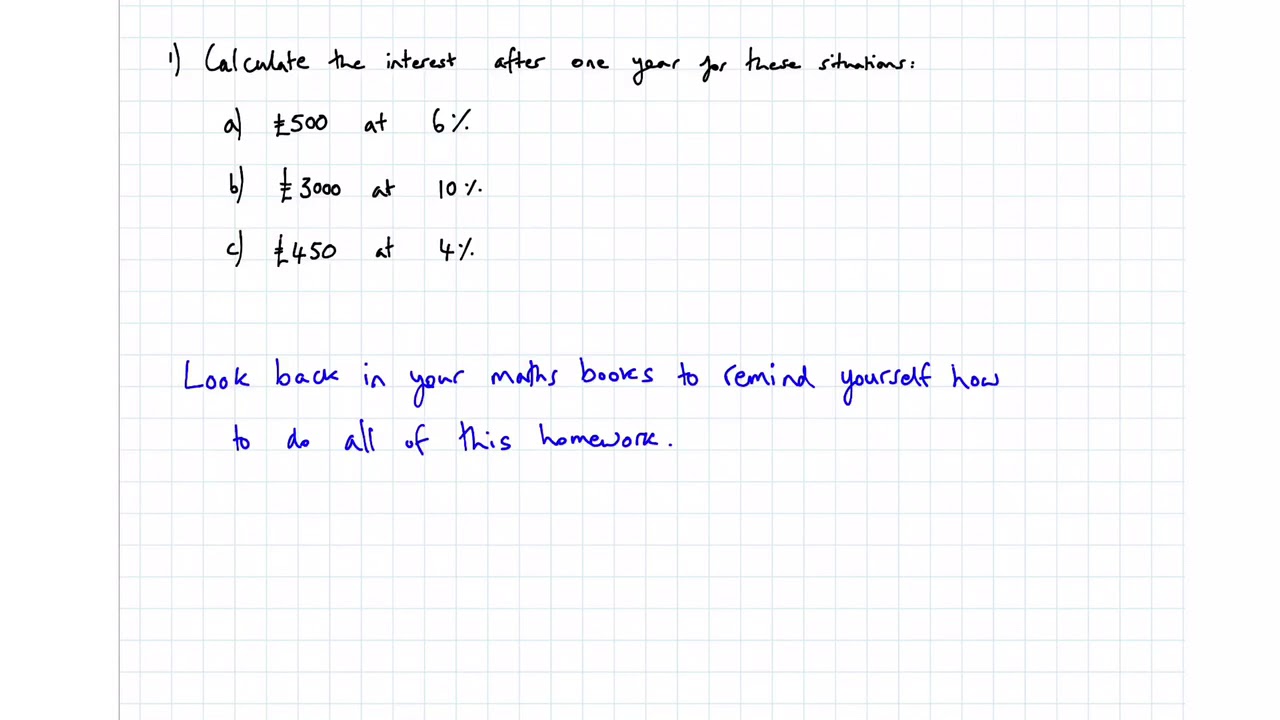 1) Calculate the interest after one year for these situations:
a) £500 at 6%
b) £3000 at 10%
c) £450 at 4%
Look back in your maths books to remind yourself how
to do all of this homework.